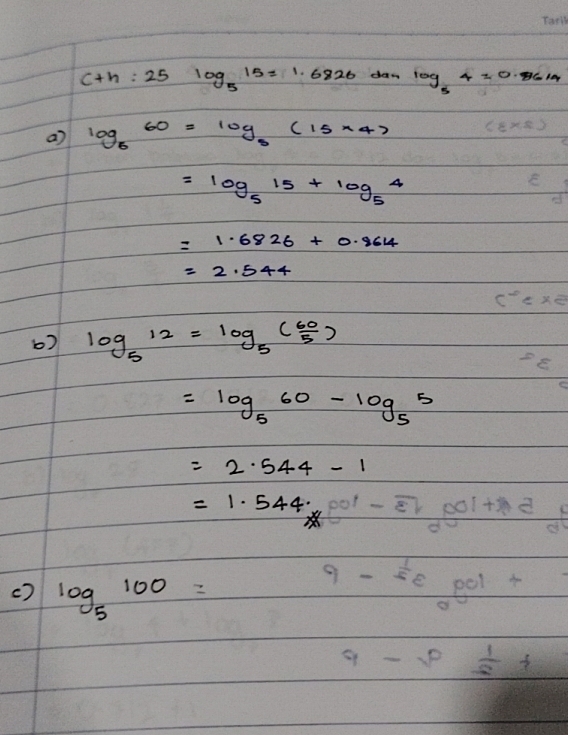 Tarik
Cth : 25 log₅ 15 = 1.6826 dan log₅ 4 = 0.8614
a) log₅ 60 = log₅ (15 × 4)
= log₅ 15 + log₅ 4
= 1.6826 + 0.8614
= 2.544
b) log₅ 12 = log₅ (60/5)
= log₅ 60 - log₅ 5
= 2.544 - 1
= 1.544.
c) log₅ 100 =